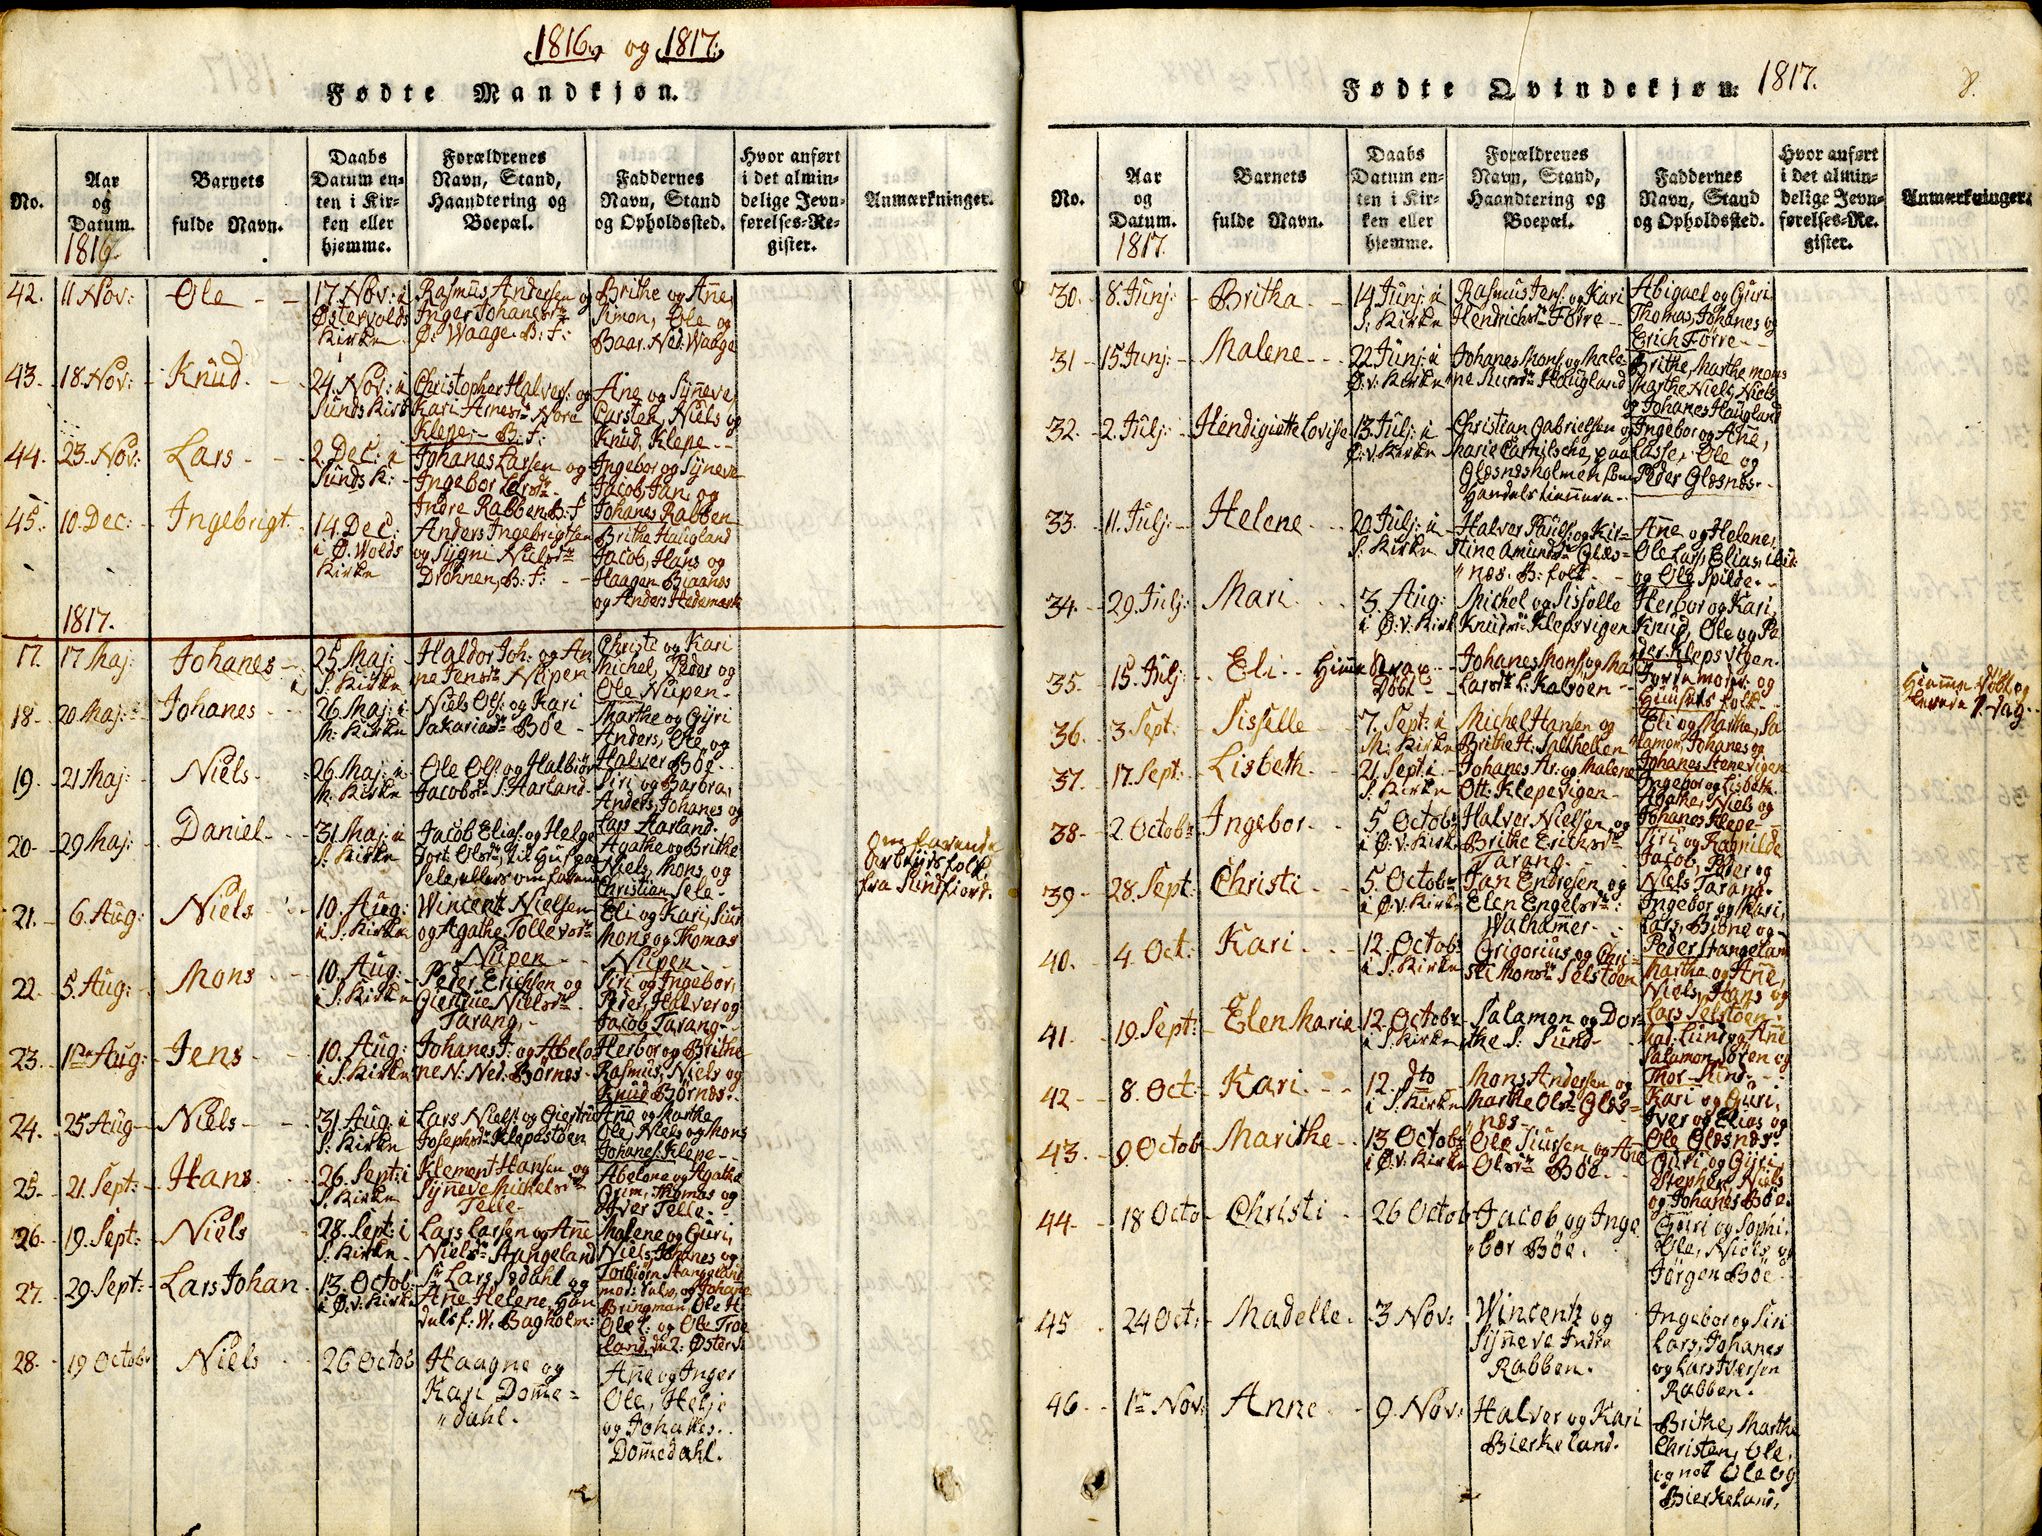 1816. og 1817.
Fødte Mandkjøn.
No.
Aar
og
Datum.
1816.
Barnets
fulde Navn.
Daabs
Datum en-
ten i Kir-
ken eller
hjemme.
Forældrenes
Navn, Stand,
Haandtering og
Boepæl.
Faddernes
Navn, Stand
og Opholdssted.
Hvor anført
i det almin-
delige Jevn-
førelses-Re-
gister.
Anmærkninger.
42. 11 Nov: Ole
17. Nov: i
Østervolds
Kirke
Rasmus Andersen og
Inger Johansdr
Ø: Waage. B: F:
Brithe og Ane,
Simon, Ole og
Baar. Ned: Waage
43. 18. Nov: Knud.
24. Nov: i
Sunds Kirk
Christopher Halvers: og
Kari Arnesdr Nore
Klepe, B: F:
Ane og Syneve,
Carsten, Niels og
Knud, Klepe
44. 23. Nov: Lars
2. Dec: i
Sunds K:
Johanes Larsen og
Ingebor Larsdr
Indre Rabben B: f
Ingebor og Syneve
Jacob, Jan, og
Johanes Rabben
45. 10. Dec: Ingebrigt.
14. Dec:
i Ø. Wolds
Kirke
Anders Ingebrigtsen
og Sygni Nielsdr
Drønen, B: f:
Brithe Haugland
Jacob, Hans og
Haagen Biaanes
og Anders Hedemark
1817.
17. 17 Maj: Johanes
25. Maj:
S: Kirke
Haldor Joh: og An
ne Jensdr Nupen
Christi og Kari
Michel, Peder og
Ole Nupen
18. 20 Maj: Johanes
26. Maj: i
M: Kirke
Niels Ols: og Kari
Sakariasdr Bøe
Marthe og Gyri
Anders, Ole og
Halver Bøe
19. 21 Maj: Niels
26. Maj: i
M: Kirke
Ole Ols: og Halbior
Jacobsdr S: Harland
Siri og Barbra,
Anders, Johanes og
Lars Harland
20. 29 Maj: Daniel
31 Maj: i
S: Kirke
Jacob Elias: og Helge
Jort: Olsdr, til Hus paa
Sele, ellers omfarende
Agathe og Brithe
Niels, Mons, og
Christian Sele
Omfarende
Arbeyds folk
fra Sundfiord.
21. 6. Aug: Niels
10. Aug:
i S: Kirke
Wincentz Nielsen
og Agathe Tollevsdr
Nupen
Eli og Kari, Siur
Mons og Thomas
Nupen
22. 5. Aug: Mons
10. Aug:
i S: Kirke
Peder Erichsen og
Gientue Nielsdr
Tarang,
Siri og Ingebor,
Peder, Halver og
Jacob Tarang
23. 1ste Aug: Jens
10. Aug:
i S. Kirke
Johanes J: og Abelo
ne N: Ned: Børnes
Herbor og Brithe
Rasmus, Niels og
Knud Børnes
24. 25 Aug Niels
31. Aug: i
S: Kirke
Lars Niels: og Giertrud
Josephsdr Klepestøen
Ane og Marthe
Ole, Niels og Mons
Johanes: Klepe
25. 21. Sept: Hans
26. Sept: i
S. Kirke
Klement Hansen og
Syneve Michelsdr
Telle
Abelone og Agathe
Grim, Thomas og
Iver Telle
26. 19. Sept: Niels
28. Sept: i
S. Kirke
Lars Larsen og Ane
Nielsdr Stangeland
Malene og Guri,
Niels Johanes og
Torbiørn Stangeland
27. 29. Sept: Lars Johan
13. Octob:
i Ø: v: Kirke
Sr Lars Isdahl og
Ane Helene, Han
dels f: W: Bagholm:
mad: Sulv, og Johane
Bringman, Ole H.
Ole L: og Ole Troe
land, du 2: Østerv:
28. 19 Octob: Niels
26 Octob
Haagne og
Kari Dome=
"dahl.
Ane og Inger
Ole, Helje
og Johanes.
Domedahl.
Fødte Qvindekjøn. 1817.
8.
No.
Aar
og
Datum.
1817.
Barnets
fulde Navn.
Daabs
Datum en-
ten i Kir-
ken eller
hjemme.
Forældrenes
Navn, Stand,
Haandtering og
Boepæl.
Faddernes
Navn, Stand
og Opholdssted.
Hvor anført
i det almin-
delige Jevn-
førelses-Re-
gister.
Anmærkninger.
30. 8. Junj: Britha
14 Junj: i
S: Kirke
Rasmus Jens: og Kari
Hendrichsdr Førre
Abigael og Guri
Thomas, Johanes og
Erich Førre
31 15 Junj: Malene
22 Junj: i
Ø: v: Kirke
Johanes Mons: og Male-
ne Siursdr Haugland
Brithe, Marthe Mons
Marthe Niels, Niels
og Johanes Haugland
32. 2. Julj: Hendigiette Lovise
13. Julj: i
Ø: v: Kirke
Christian Gabrielsen og
Marie paa
Glæsnæsholmen som
Handelstiennere
Ingebor og Ane,
Lasse, Ole og
Peder Glæsnæs
33. 11. Julj: Helene
20 Julj: i
S: Kirke
Halver Pauls: og Kir-
stine Amundsdr Glæs-
"næs. B: folk
Ane og Helene,
Ole Lars, Elias, ibid:
og Ole Spilde
34. 29. Julj: Mari
3. Aug:
i Ø: v: Kirk
Michel og Sisselle
Knudsdr Klepsvigen
Herbor og Kari,
Knud, Ole og Pe
der Klepsvigen
35. 15. Julj: Eli
Hiemme
Døbt
Johanes Mons: og Mar
Larsdr L: Kalsøen
Jordemoder og
Huusets folk
Hiemme døbt og
levede 1. Dag.
36. 3 Sept: Sisselle
7. Sept: i
M: Kirke
Michel Hansen og
Brithe H: Salthellen
Eli og Marthe, Sa
lamon, Johanes og
Johanes Stenevigen
37. 17. Sept: Lisbeth
21. Sept: i
S. Kirke
Johanes Ar: og Malene
Ott: Klepevigen
Ingebor og Lisbeth
Agathe, Niels og
Johanes Klepe
38 2 Octobr Ingebor
5 Octobr
i Ø: v: Kirk
Halver Nielsen og
Brithe Erichsdr
Tarang
Siri og Ragnilde
Jacob, Peder og
Niels Tarang
39 28. Sept: Christi
5. Octobr
i Ø: v: Kirk
Jan Endresen og
Elen Engelsdr
Walhamer
Ingebor og Mari,
Lars, Biøne og
Peder Stangeland
40. 4. Oct: Kari
12. Octobr
i S: Kirke
Grigorius og Chri-
sti Monsdr Selstøen
Marthe og Ane,
Niels, Hans og
Lars Selstøen
41. 19. Sept: Elen Maria
12. Octobr
i S: Kirke
Salamon og Dor-
the S: Sund
Mad: Lund og Ane
Salamon, Søren og
Thor Sund
42 8. Oct: Kari
12. dto
i S: Kirke
Mons Andersen og
Marthe Olsdr Glæs-
"næs
Kari og Guri,
Iver og Elias og
Ole Glæsnæs
43. 9. Octob Marithe
13. Octobr
i Ø: v: Kirke
Ole Siursen og Ane
Olsdr Bøe
Guri og Gyri
Stephen, Niels
og Johanes Bøe.
44 18 Octo Christi
26 Octob
Jacob og Inge
"bor Bøe.
Guri og Sophi.
Ole, Niels og
Jørgen Bøe
45 24 Oct: Madelle.
3 Nov:
Wincentz og
Syneve Indre
Rabben.
Ingebor og Siri
Lars, Johanes
og Lars Iversen
Rabben.
46 1ste Nov: Anne
9. Nov:
Halver og Kari
Bierkeland.
Brithe, Marthe
Christen, Ole,
og not Ole og
Bierkeland,